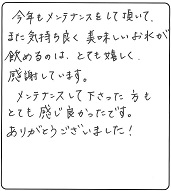 今年もメンテナンスをして頂いて、
また気持ち良く美味しいお水が
飲めるのは、とても嬉しく、
感謝しています。
メンテナンスして下さった方も
とても感じ良かったです。
ありがとうございました!